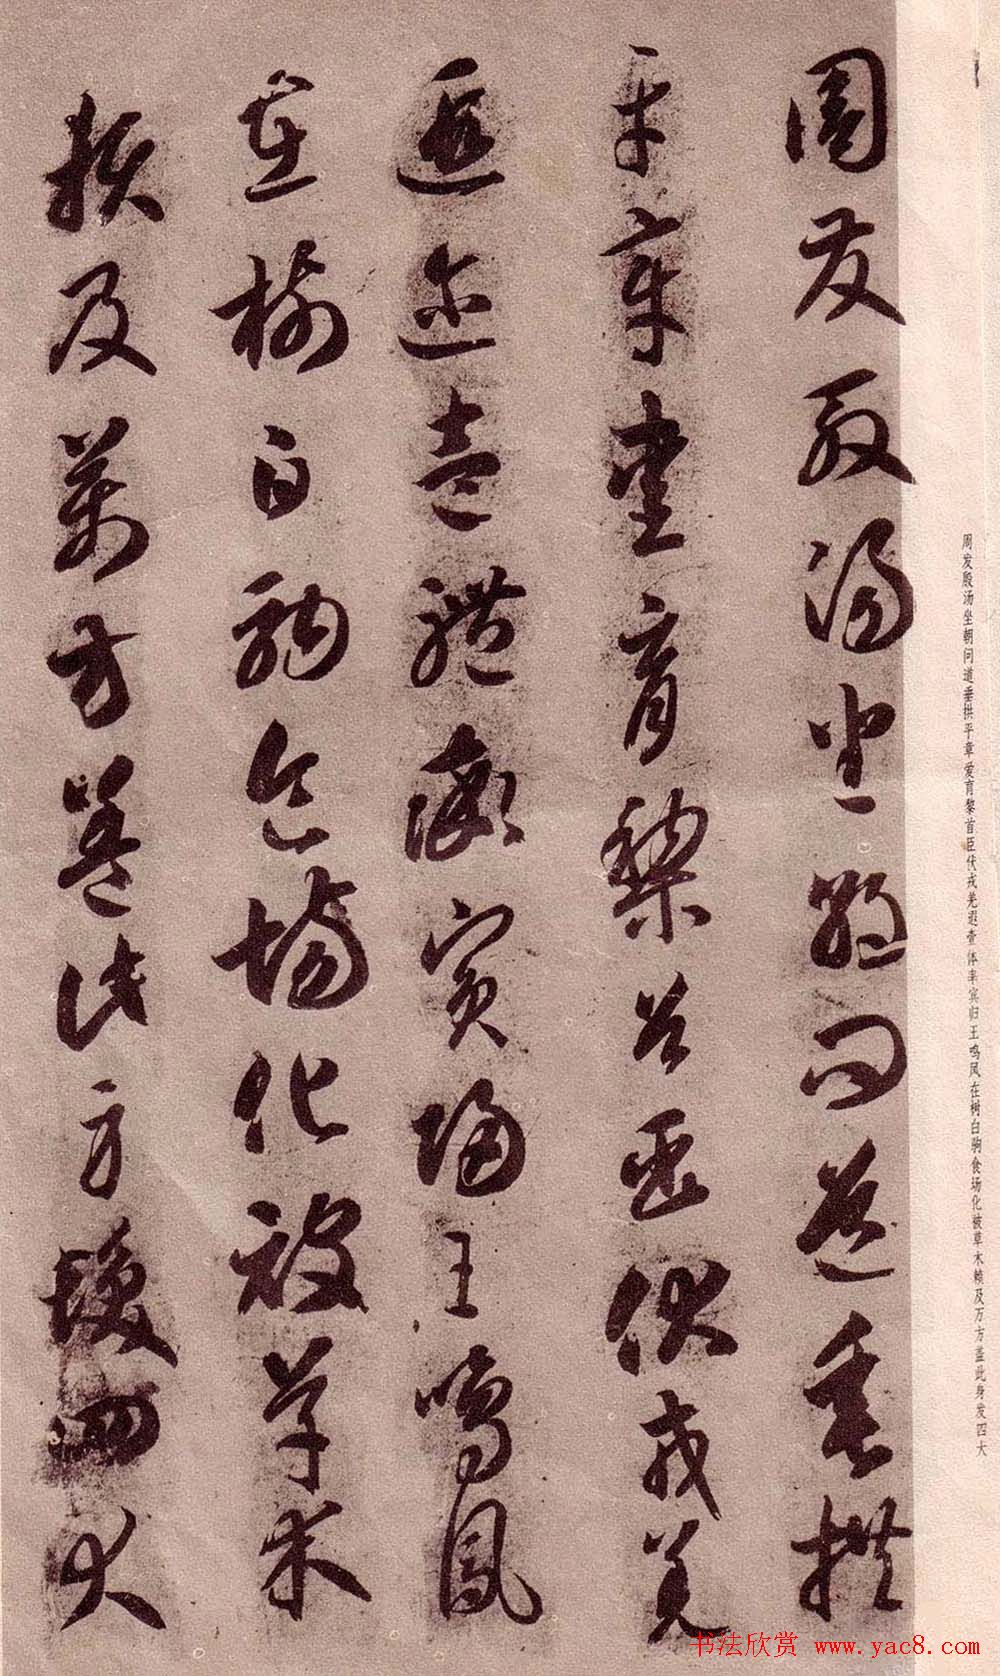 周發殷湯坐朝問道垂拱
平章愛育黎首臣伏戎羌
遐迩壹體率賓歸王鳴鳳
在樹白駒食場化被草木
賴及萬方蓋此身髮四大
周发殷汤坐朝问道垂拱平章爱育黎首臣伏戎羌遐壹体率宾归王鸣凤在树白驹食场化被草木赖及万方盖此身发四大
书法欣赏 www.yac8.com